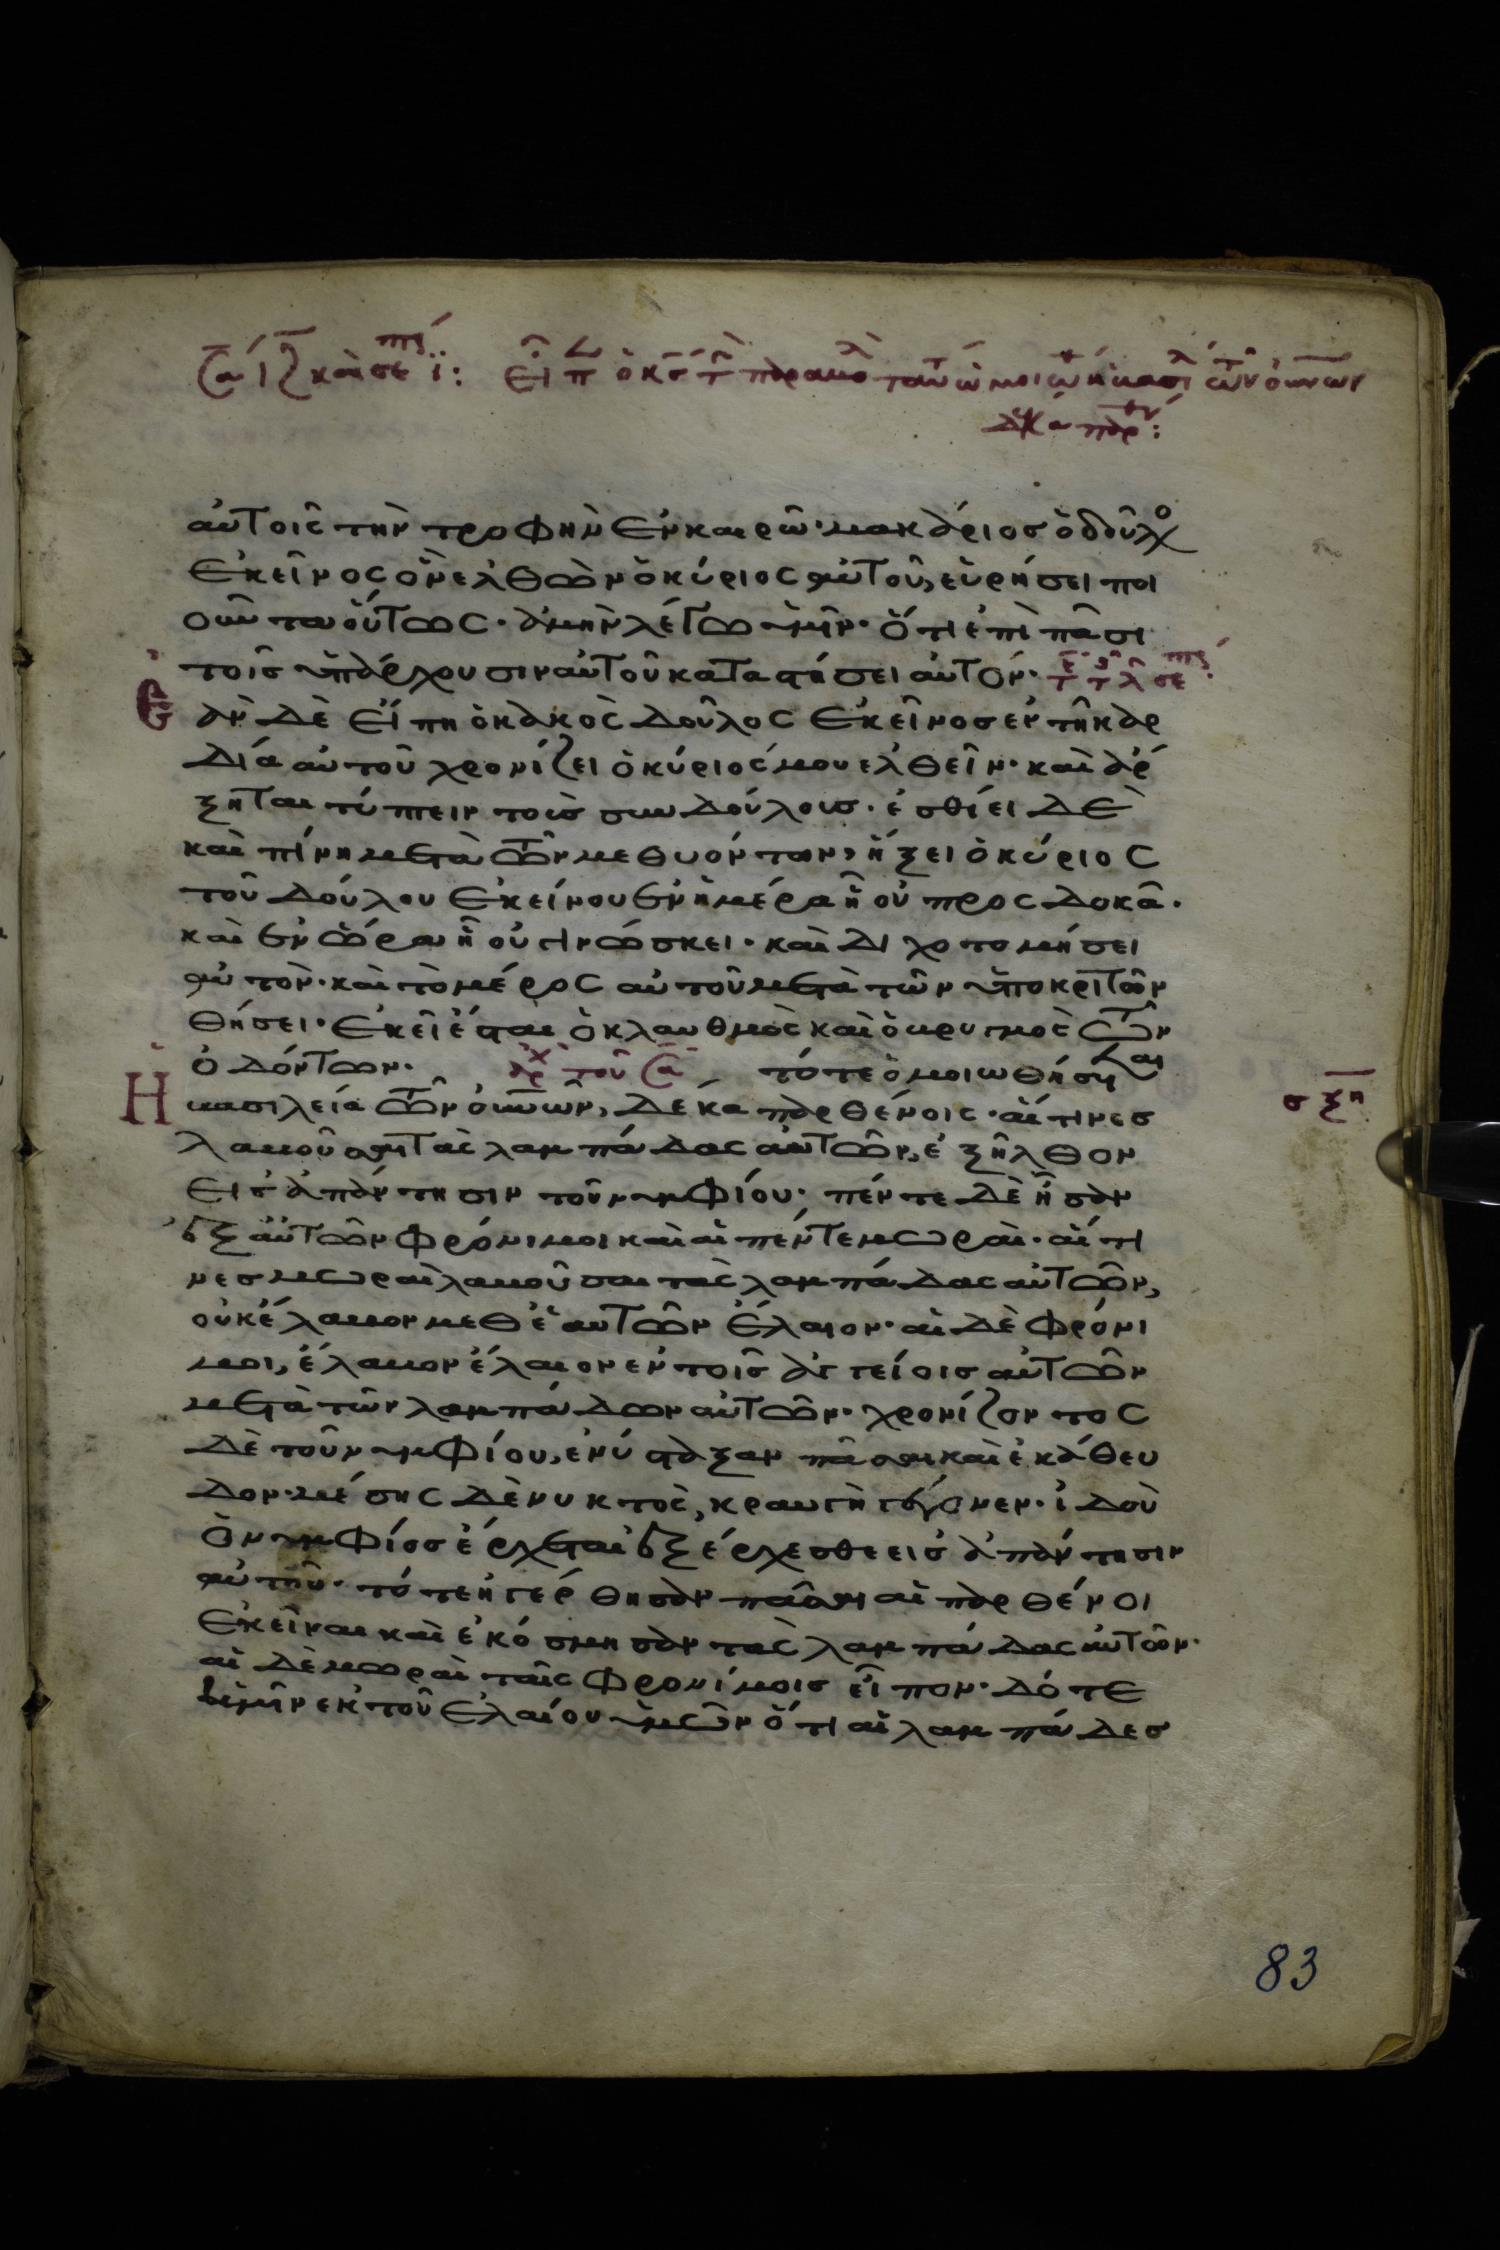 αὐτοῖς τὴν τροφὴν ἐν καιρῶ· μακάριος ὁ δοῦλο
ἐκεῖνος ὃν ἐλθὼν ὁ κύριος αὐτοῦ, εὑρήσει ποι
οῦντα οὕτως· ἀμὴν λέγω ὑμῖν· ὅτι ἐπὶ πᾶσι
τοῖς ὑπάρχουσιν αὐτοῦ καταστήσει αὐτόν·
Ἐὰν δὲ εἴπη ὁ κακὸς δοῦλος ἐκεῖνος ἐν τῆ καρ
δία αὐτοῦ χρονίζει ὁ κύριός μου ἐλθεῖν· καὶ ἄρ
ξηται τύπτειν τοὺς συνδούλους· ἐσθίει δὲ
καὶ πίνη μετὰ τῶν μεθυόντων, ἥξει ὁ κύριος
τοῦ δούλου ἐκείνου ἐν ἡμέρα ἧ οὐ προσδοκᾶ·
καὶ ἐν ὥρα ἧ οὐ γινώσκει· καὶ διχοτομήσει
αὐτὸν· καὶ τὸ μέρος αὐτοῦ μετὰ τῶν ὑποκριτῶν
θήσει· ἐκεῖ ἔσται ὁ κλαυθμὸς καὶ ὁ βρυγμὸς τῶν
ὀδόντων· ἀρχ τοῦ Ϲα τότε ὁμοιωθήσεται
Ἡ βασιλεία τῶν οὐνων, δέκα παρθένοις· αἵτινες σξη
λαβοῦσαι τὰς λαμπάδας αὐτῶν, ἐξῆλθον
εἰς ἀπάντησιν τοῦ νυμφίου· πέντε δὲ ἦσαν
ἐξ αὐτῶν φρόνιμοι καὶ αἱ πέντε μωραὶ· αἵτι
νες μωραὶ λαβοῦσαι τὰς λαμπάδας αὐτῶν,
οὐκ ἔλαβον μεθ ἑαυτῶν ἔλαιον· αἱ δὲ φρόνι
μοι, ἔλαβον ἔλαιον ἐν τοῖς ἀγγείοις αὐτῶν
μετὰ τῶν λαμπάδων αὐτῶν· χρονίζοντος
δὲ τοῦ νυμφίου, ἐνύσταξαν πᾶσαι καὶ ἐκάθευ
δον· μέσης δὲ νυκτὸς, κραυγὴ γέγονεν· ἰδοὺ
ὁ νυμφίος ἔρχεται ἐξέρχεσθε εἰς ἀπάντησιν
αὐτοῦ· τότε ἠγέρθησαν πᾶσαι αἱ παρθένοι
ἐκεῖναι καὶ ἐκόσμησαν τὰς λαμπάδας αὐτῶν·
αἱ δὲ μωραὶ ταῖς φρονίμοις εἶπον· δότε
ἡμῖν ἐκ τοῦ ἐλαίου ὑμῶν ὅτι αἱ λαμπάδες
83